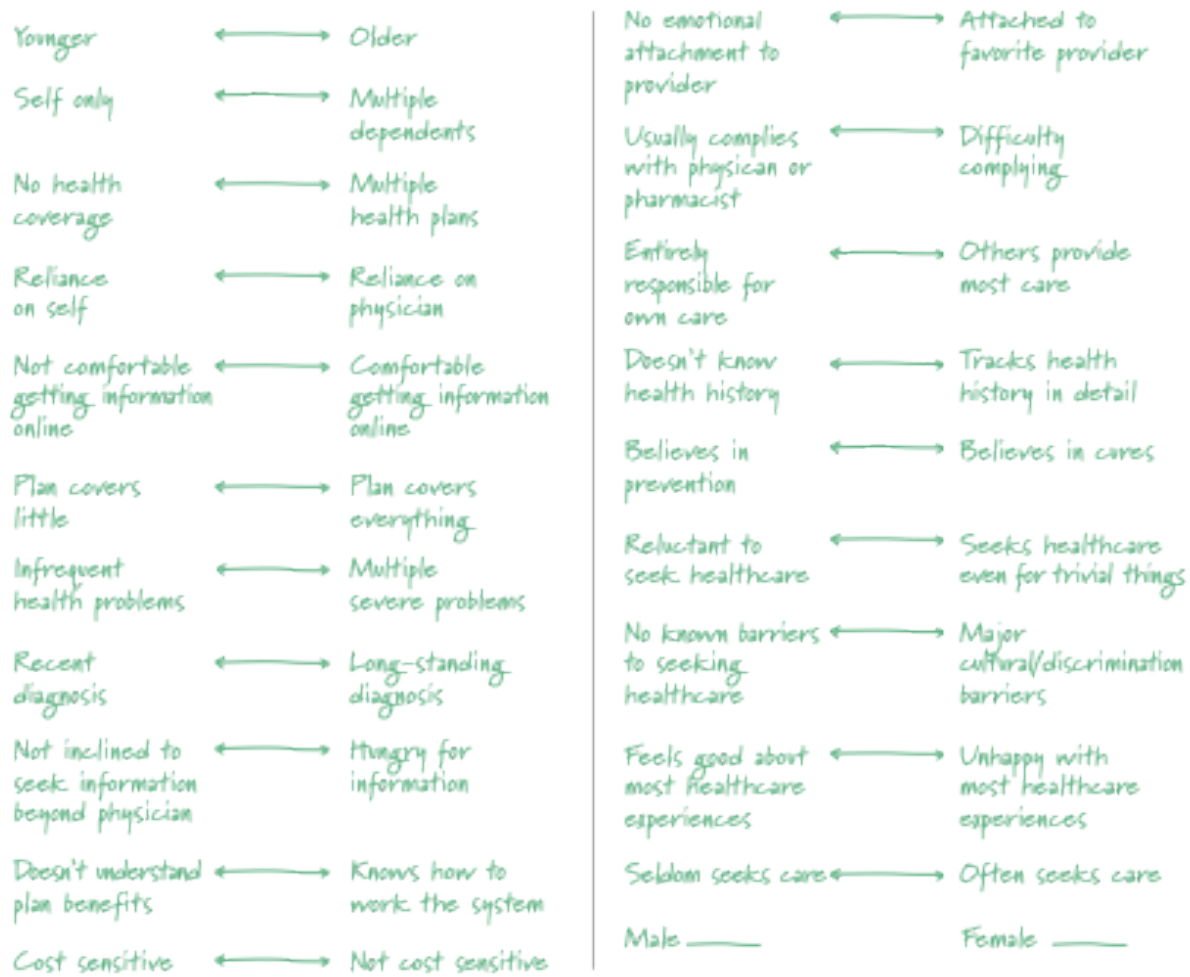 Younger
Older
Self only
Multiple
dependents
No health
coverage
Multiple
health plans
Reliance
on self
Reliance on
physician
Not comfortable
getting information
online
Comfortable
getting information
online
Plan covers
little
Plan covers
everything
Infrequent
health problems
Multiple
severe problems
Recent
diagnosis
Long-standing
diagnosis
Not inclined to
seek information
beyond physician
Hungry for
information
Doesn't understand
plan benefits
Knows how to
work the system
Cost sensitive
Not cost sensitive
No emotional
attachment to
provider
Attached to
favorite provider
Usually complies
with physican or
pharmacist
Difficulty
complying
Entirely
responsible for
own care
Others provide
most care
Doesn't know
health history
Tracks health
history in detail
Believes in
prevention
Believes in cures
Reluctant to
seek healthcare
Seeks healthcare
even for trivial things
No known barriers
to seeking
healthcare
Major
cultural/discrimination
barriers
Feels good about
most healthcare
experiences
Unhappy with
most healthcare
experiences
Seldom seeks care
Often seeks care
Male
Female